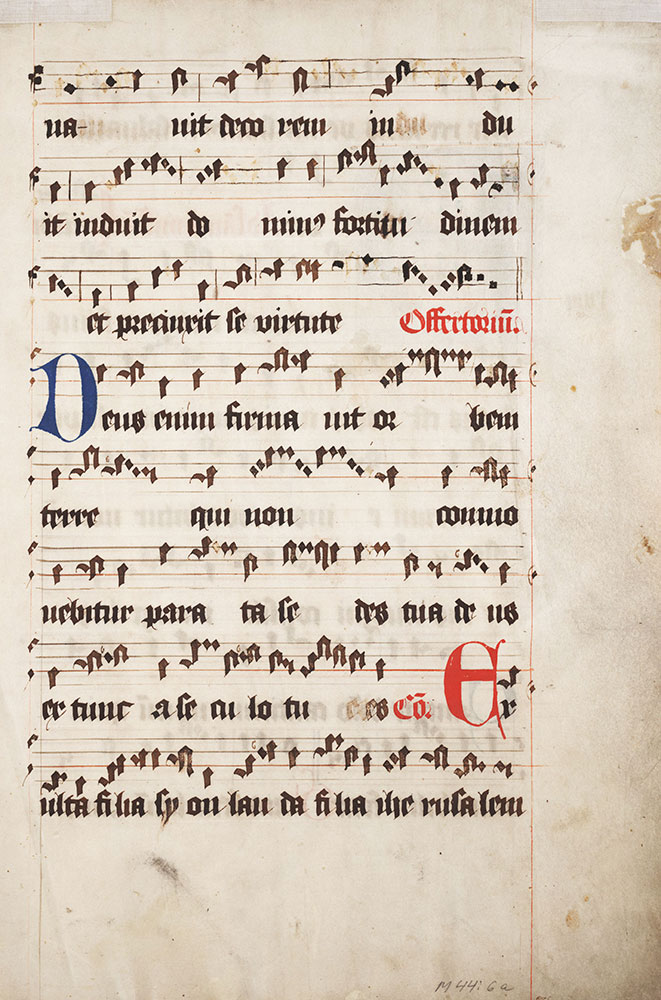 na- uit deco rem in du du
it induit do minus fortitu dinem
et precinxit se virtute Offertorium.
Deus enim firma uit or bem
terre qui non commo
uebitur para ta se des tua de us
ex tunc a se cu lo tu es Co. Ex
ulta filia sy on lau da filia ihe rusalem
M 44:6a